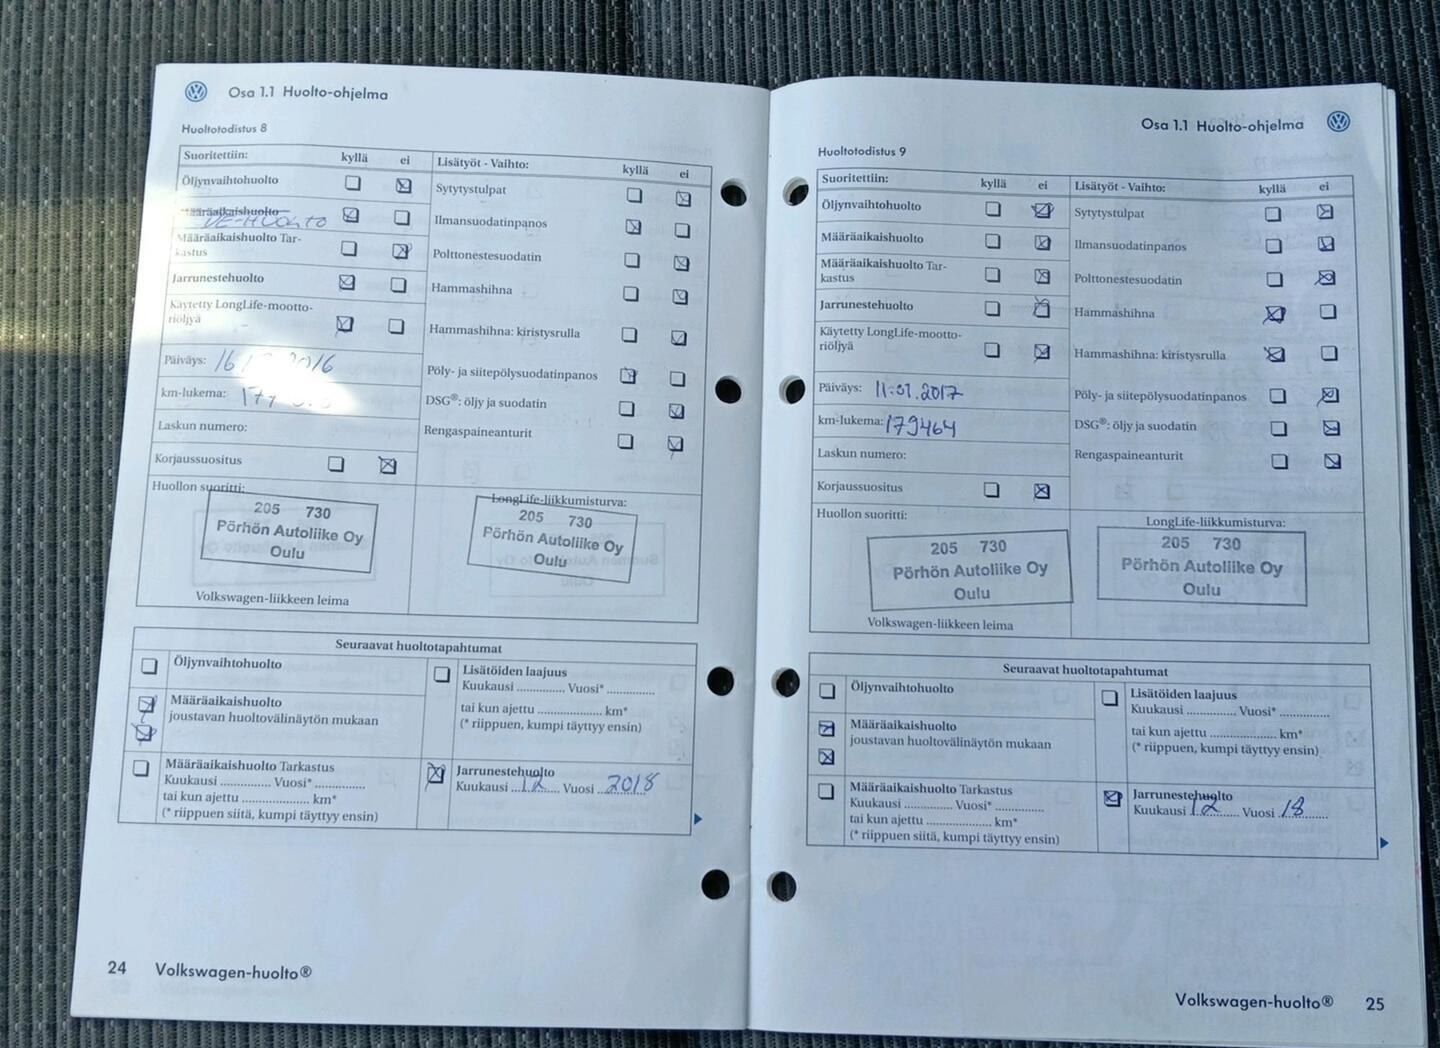 Osa 1.1 Huolto-ohjelma
Huoltotodistus 8
Suoritettiin: kyllä ei
Öljynvaihtohuolto
Määräaikaishuolto
VE-HUOLTO
Määräaikaishuolto Tar-
kastus
Jarrunestehuolto
Käytetty LongLife-mootto-
riöljyä
Päiväys: 16 2016
km-lukema:
Laskun numero:
Korjaussuositus
Lisätyöt - Vaihto: kyllä ei
Sytytystulpat
Ilmansuodatinpanos
Polttonestesuodatin
Hammashihna
Hammashihna: kiristysrulla
Pöly- ja siitepölysuodatinpanos
DSG®: öljy ja suodatin
Rengaspaineanturit
Huollon suoritti:
205 730
Pörhön Autoliike Oy
Oulu
Volkswagen-liikkeen leima
LongLife-liikkumisturva:
205 730
Pörhön Autoliike Oy
Oulu
Seuraavat huoltotapahtumat
Öljynvaihtohuolto
Määräaikaishuolto
joustavan huoltovälinäytön mukaan
Määräaikaishuolto Tarkastus
Kuukausi ............. Vuosi* .............
tai kun ajettu .................... km*
(* riippuen siitä, kumpi täyttyy ensin)
Lisätöiden laajuus
Kuukausi ............. Vuosi* .............
tai kun ajettu .................... km*
(* riippuen, kumpi täyttyy ensin)
Jarrunestehuolto
Kuukausi 12 Vuosi 2018
24 Volkswagen-huolto®
Osa 1.1 Huolto-ohjelma
Huoltotodistus 9
Suoritettiin: kyllä ei
Öljynvaihtohuolto
Määräaikaishuolto
Määräaikaishuolto Tar-
kastus
Jarrunestehuolto
Käytetty LongLife-mootto-
riöljyä
Päiväys: 11.01.2017
km-lukema: 179464
Laskun numero:
Korjaussuositus
Lisätyöt - Vaihto: kyllä ei
Sytytystulpat
Ilmansuodatinpanos
Polttonestesuodatin
Hammashihna
Hammashihna: kiristysrulla
Pöly- ja siitepölysuodatinpanos
DSG®: öljy ja suodatin
Rengaspaineanturit
Huollon suoritti:
205 730
Pörhön Autoliike Oy
Oulu
Volkswagen-liikkeen leima
LongLife-liikkumisturva:
205 730
Pörhön Autoliike Oy
Oulu
Seuraavat huoltotapahtumat
Öljynvaihtohuolto
Määräaikaishuolto
joustavan huoltovälinäytön mukaan
Määräaikaishuolto Tarkastus
Kuukausi ............. Vuosi* .............
tai kun ajettu .................... km*
(* riippuen siitä, kumpi täyttyy ensin)
Lisätöiden laajuus
Kuukausi ............. Vuosi* .............
tai kun ajettu .................... km*
(* riippuen, kumpi täyttyy ensin)
Jarrunestehuolto
Kuukausi 12 Vuosi 18
Volkswagen-huolto® 25